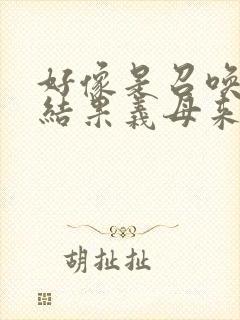 好像是召喚
結果義母来
胡扯扯